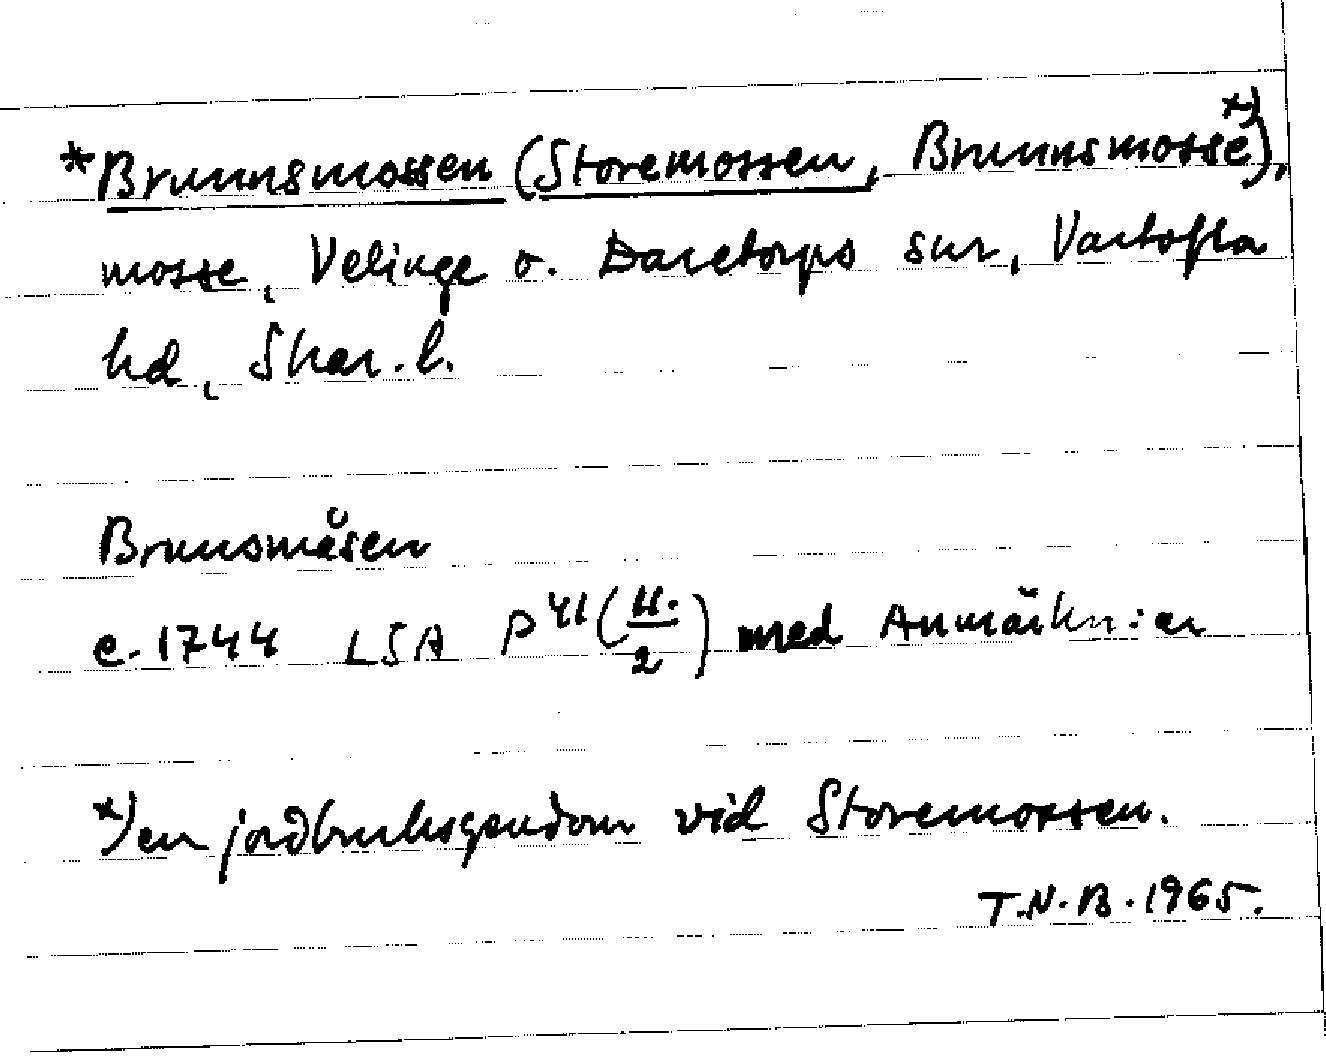 *Brunnsmossen (Storemossen, Brunnsmosse x)),
mosse, Velinge o. Daretorps snr, Vartofta
hd, Skar. l.
Brunsmåsen
c. 1744 LSA P 41 (11./2) med Anmärkn:ar
x) en jordbruksegendom vid Storemossen.
T.N.B. 1965.